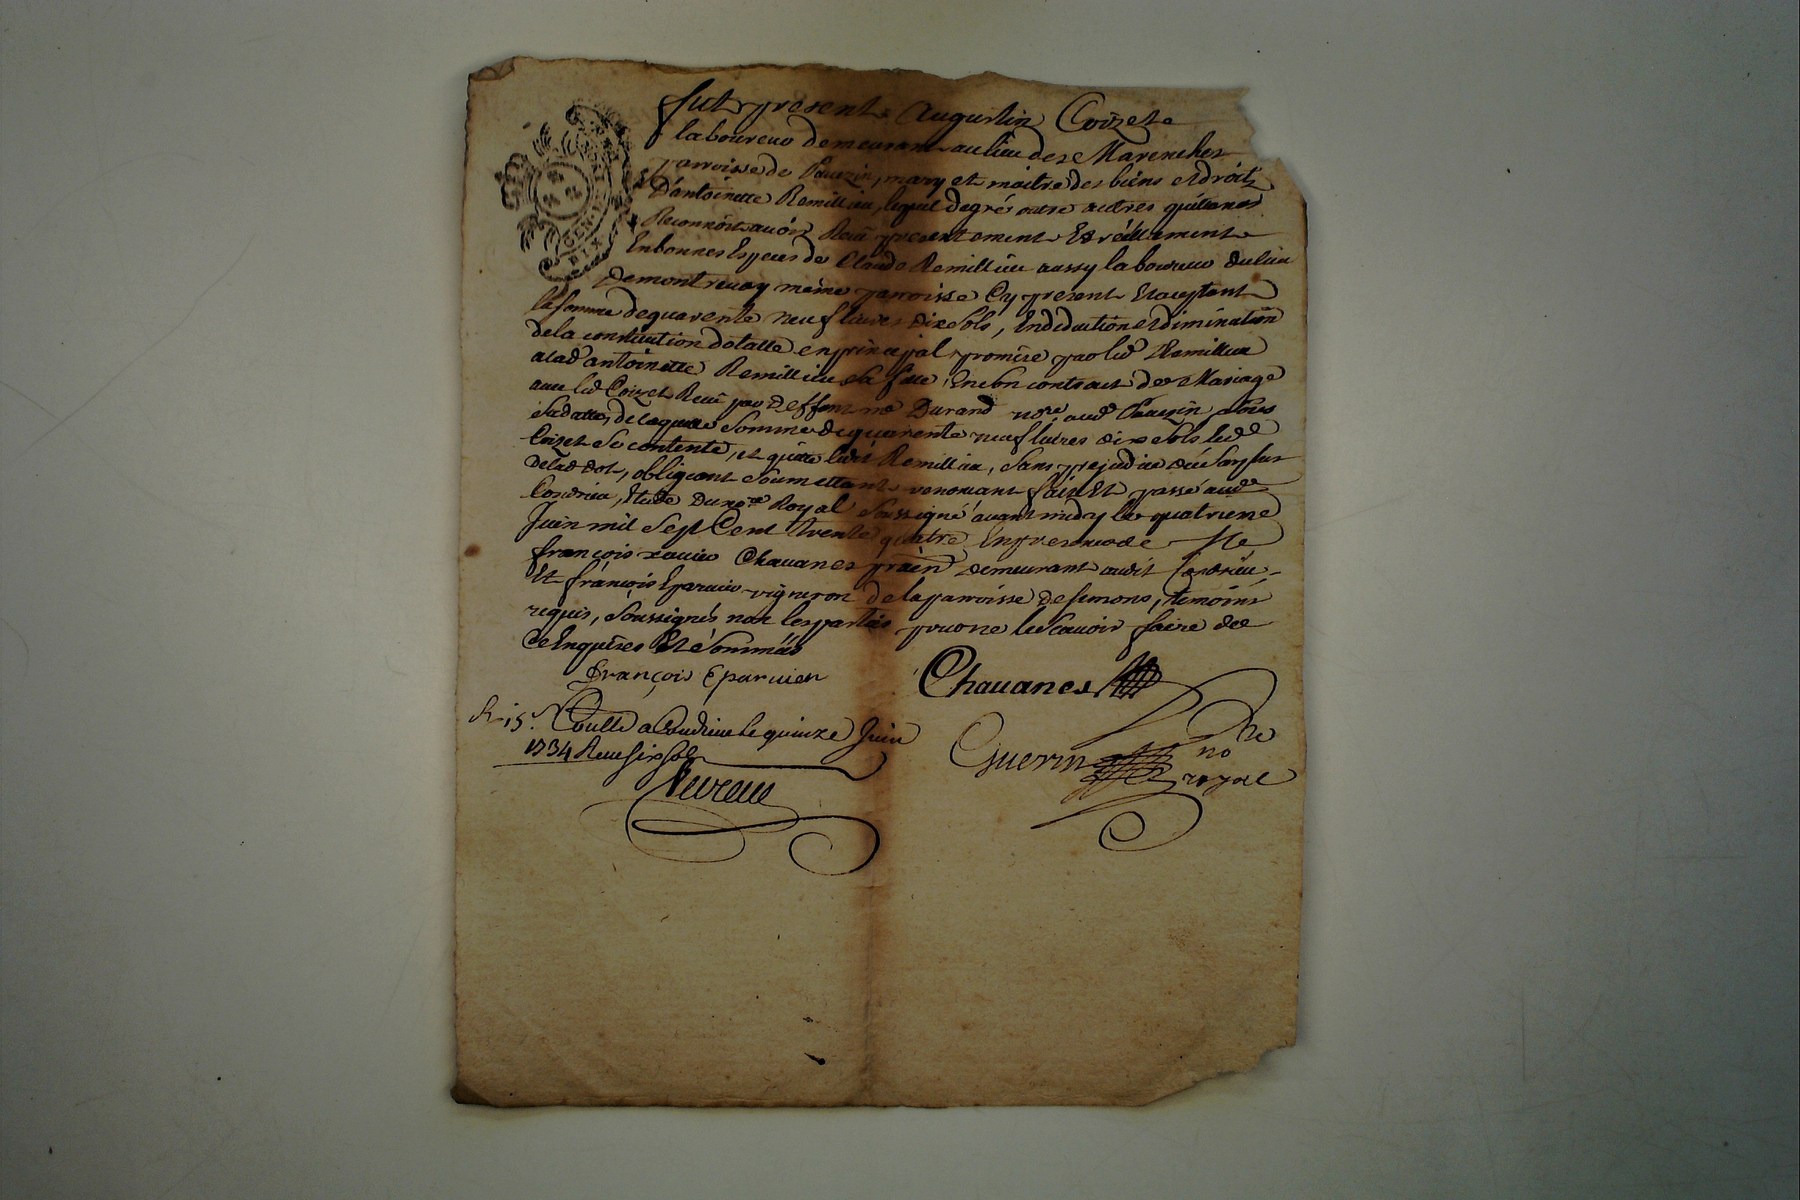 fut present Augustin Coizet
laboureur demeurant au lieu des Marenches
parroisse de Pauezin, mary et maitre des biens et droits
D'antoinette Remillieu, lequel de gré outre autres quittances
Reconnoit auoir Receu presentement Et réellement
En bonnes Especes de Claude Remillieu aussy laboureur du lieu
De montreuay meme parroisse Cy present Et acceptant
la somme de quarente neuf liures dix sols, En deduction et diminution
de la constitution dotalle en principal promise par led Remillieu
a lad antoinette Remillieu sa fille, En son contract de Mariage
auec led Coizet Receu par deffunt me Durand nore aud Pauezin sous
sa datte, de laquelle somme de quarente neuf liures dix sols led
Coizet se contente, et quitte ledit Remillieu, sans prejudice du surplus
de lad dot, obligeant soumettant renonceant fait Et passé aud
Condrieu, Etude du nore Royal soussigné auant midy le quatrieme
Juin mil sept Cent trente quatre, En presence de Sr
françois xauier Chauanes praen demeurant audit Condrieu
Et françois Eparuier vigneron de la parroisse de semons, temoins
requis, soussignés non les parties pour ne le scauoir faire de
ce Enquises Et sommées
François Eparuier
Chauanes
R 15 s.
Conllé a Condrieu le quinze Juin
1734 Receu six sols
Guerin
no re
royal